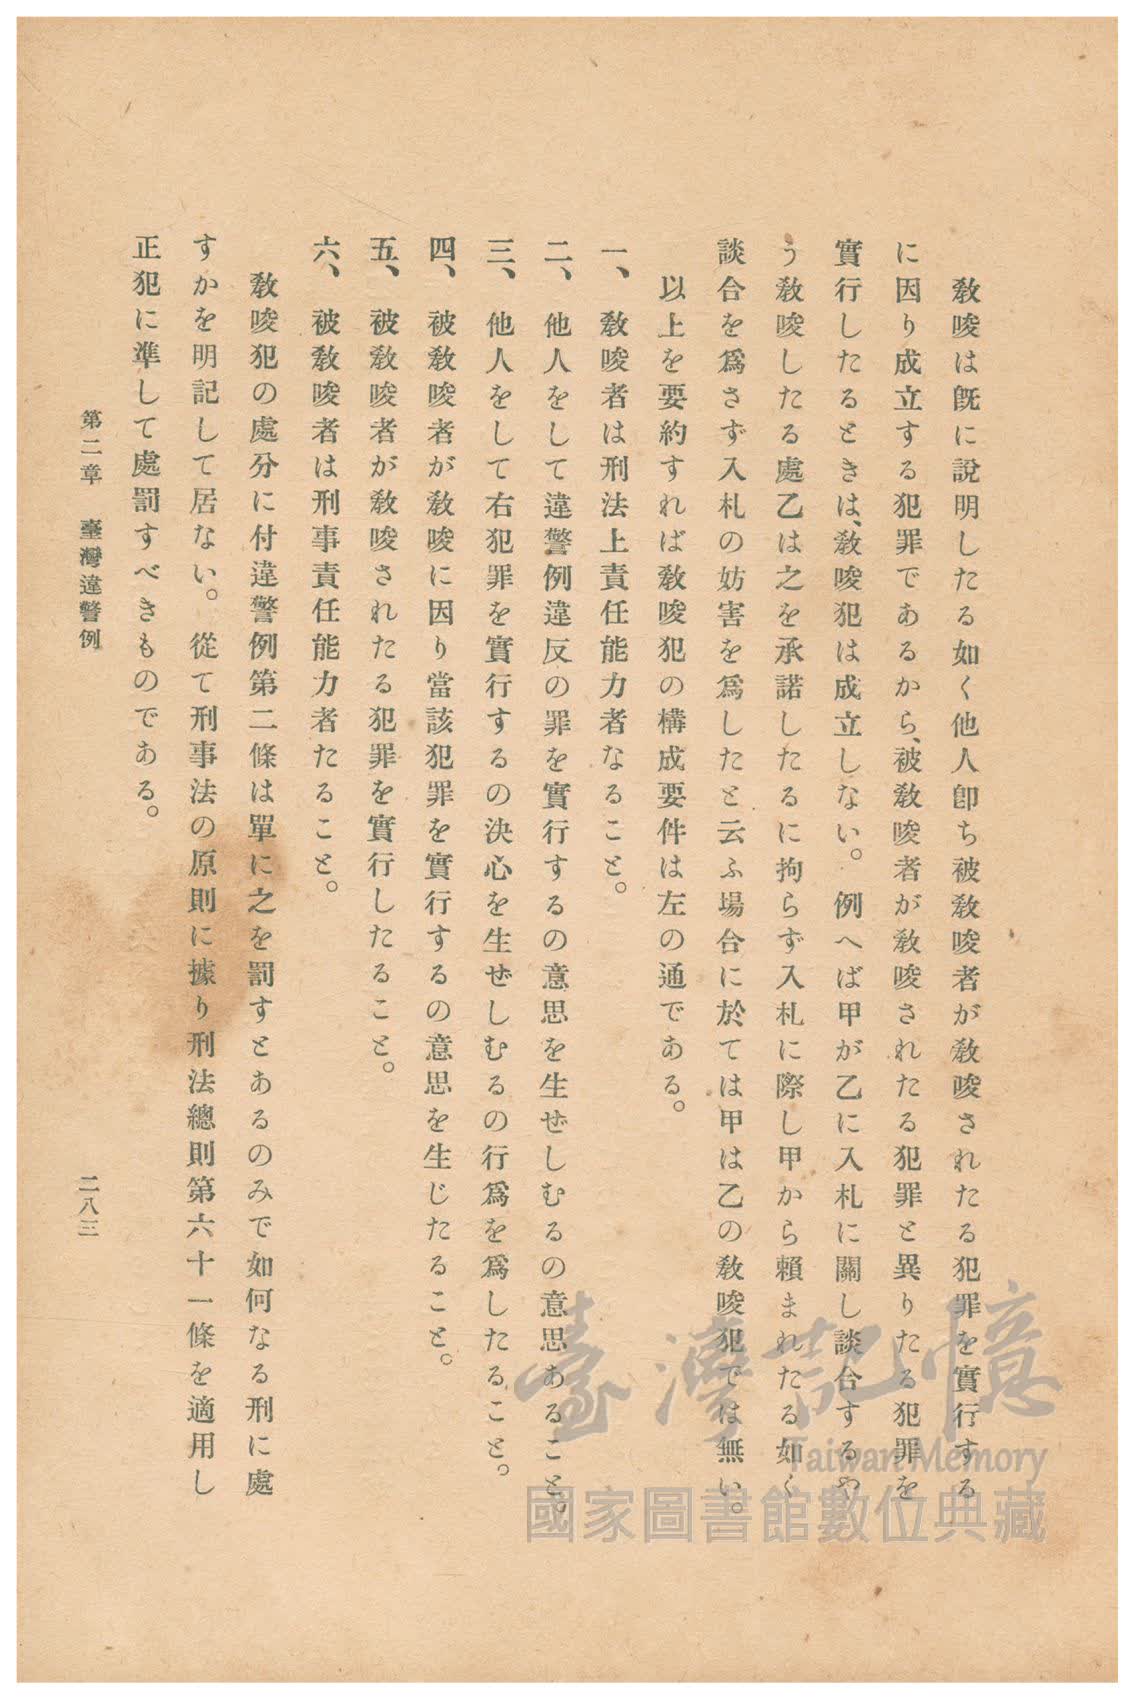 教唆は既に說明したる如く他人卽ち被教唆者が教唆されたる犯罪を實行する
に因り成立する犯罪であるから、被教唆者が教唆されたる犯罪と異りたる犯罪を
實行したるときは、教唆犯は成立しない。例へば甲が乙に入札に關し談合するや
う教唆したる處乙は之を承諾したるに拘らず入札に際し甲から賴まれたる如く
談合を爲さず入札の妨害を爲したと云ふ場合に於ては甲は乙の教唆犯では無い。
以上を要約すれば教唆犯の構成要件は左の通である。
一、教唆者は刑法上責任能力者なること。
二、他人をして違警例違反の罪を實行するの意思を生ぜしむるの意思あること。
三、他人をして右犯罪を實行するの決心を生ぜしむるの行爲を爲したること。
四、被教唆者が教唆に因り當該犯罪を實行するの意思を生じたること。
五、被教唆者が教唆されたる犯罪を實行したること。
六、被教唆者は刑事責任能力者たること。
教唆犯の處分に付違警例第二條は單に之を罰すとあるのみで如何なる刑に處
すかを明記して居ない。從て刑事法の原則に據り刑法總則第六十一條を適用し
正犯に準して處罰すべきものである。
第二章 臺灣違警例 二八三
臺灣記憶
Taiwan Memory
國家圖書館數位典藏